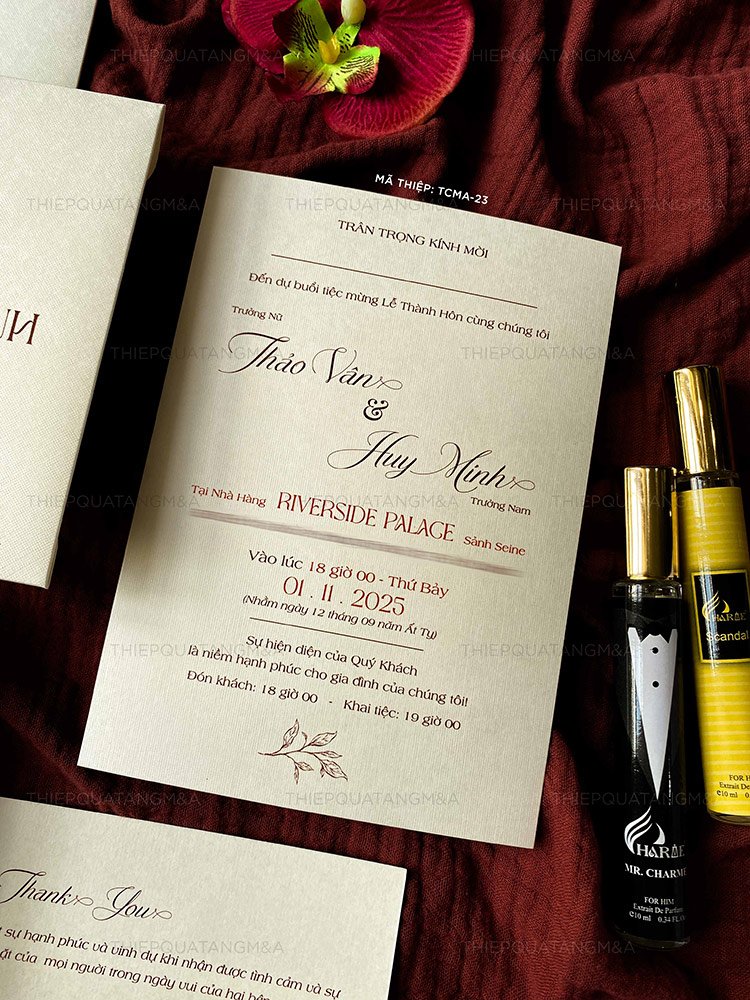 MÃ THIỆP: TCMA-23
TRÂN TRỌNG KÍNH MỜI
Đến dự buổi tiệc mừng Lễ Thành Hôn cùng chúng tôi
Trưởng Nữ
Thảo Vân
&
Huy Minh
Trưởng Nam
Tại Nhà Hàng RIVERSIDE PALACE Sảnh Seine
Vào lúc 18 giờ 00 - Thứ Bảy
01 . 11 . 2025
(Nhằm ngày 12 tháng 09 năm Ất Tỵ)
Sự hiện diện của Quý Khách
là niềm hạnh phúc cho gia đình của chúng tôi!
Đón khách: 18 giờ 00 - Khai tiệc: 19 giờ 00
Thank You
sự hạnh phúc và vinh dự khi nhận được tình cảm và sự
mọi người trong ngày vui của hai bên
CHARME
Scandal
FOR H
Extrait De
℮10 ml
CHARME
MR. CHARME
FOR HIM
Extrait De Parfum
℮10 ml 0.34 FL.
THIEPQUATANGM&A